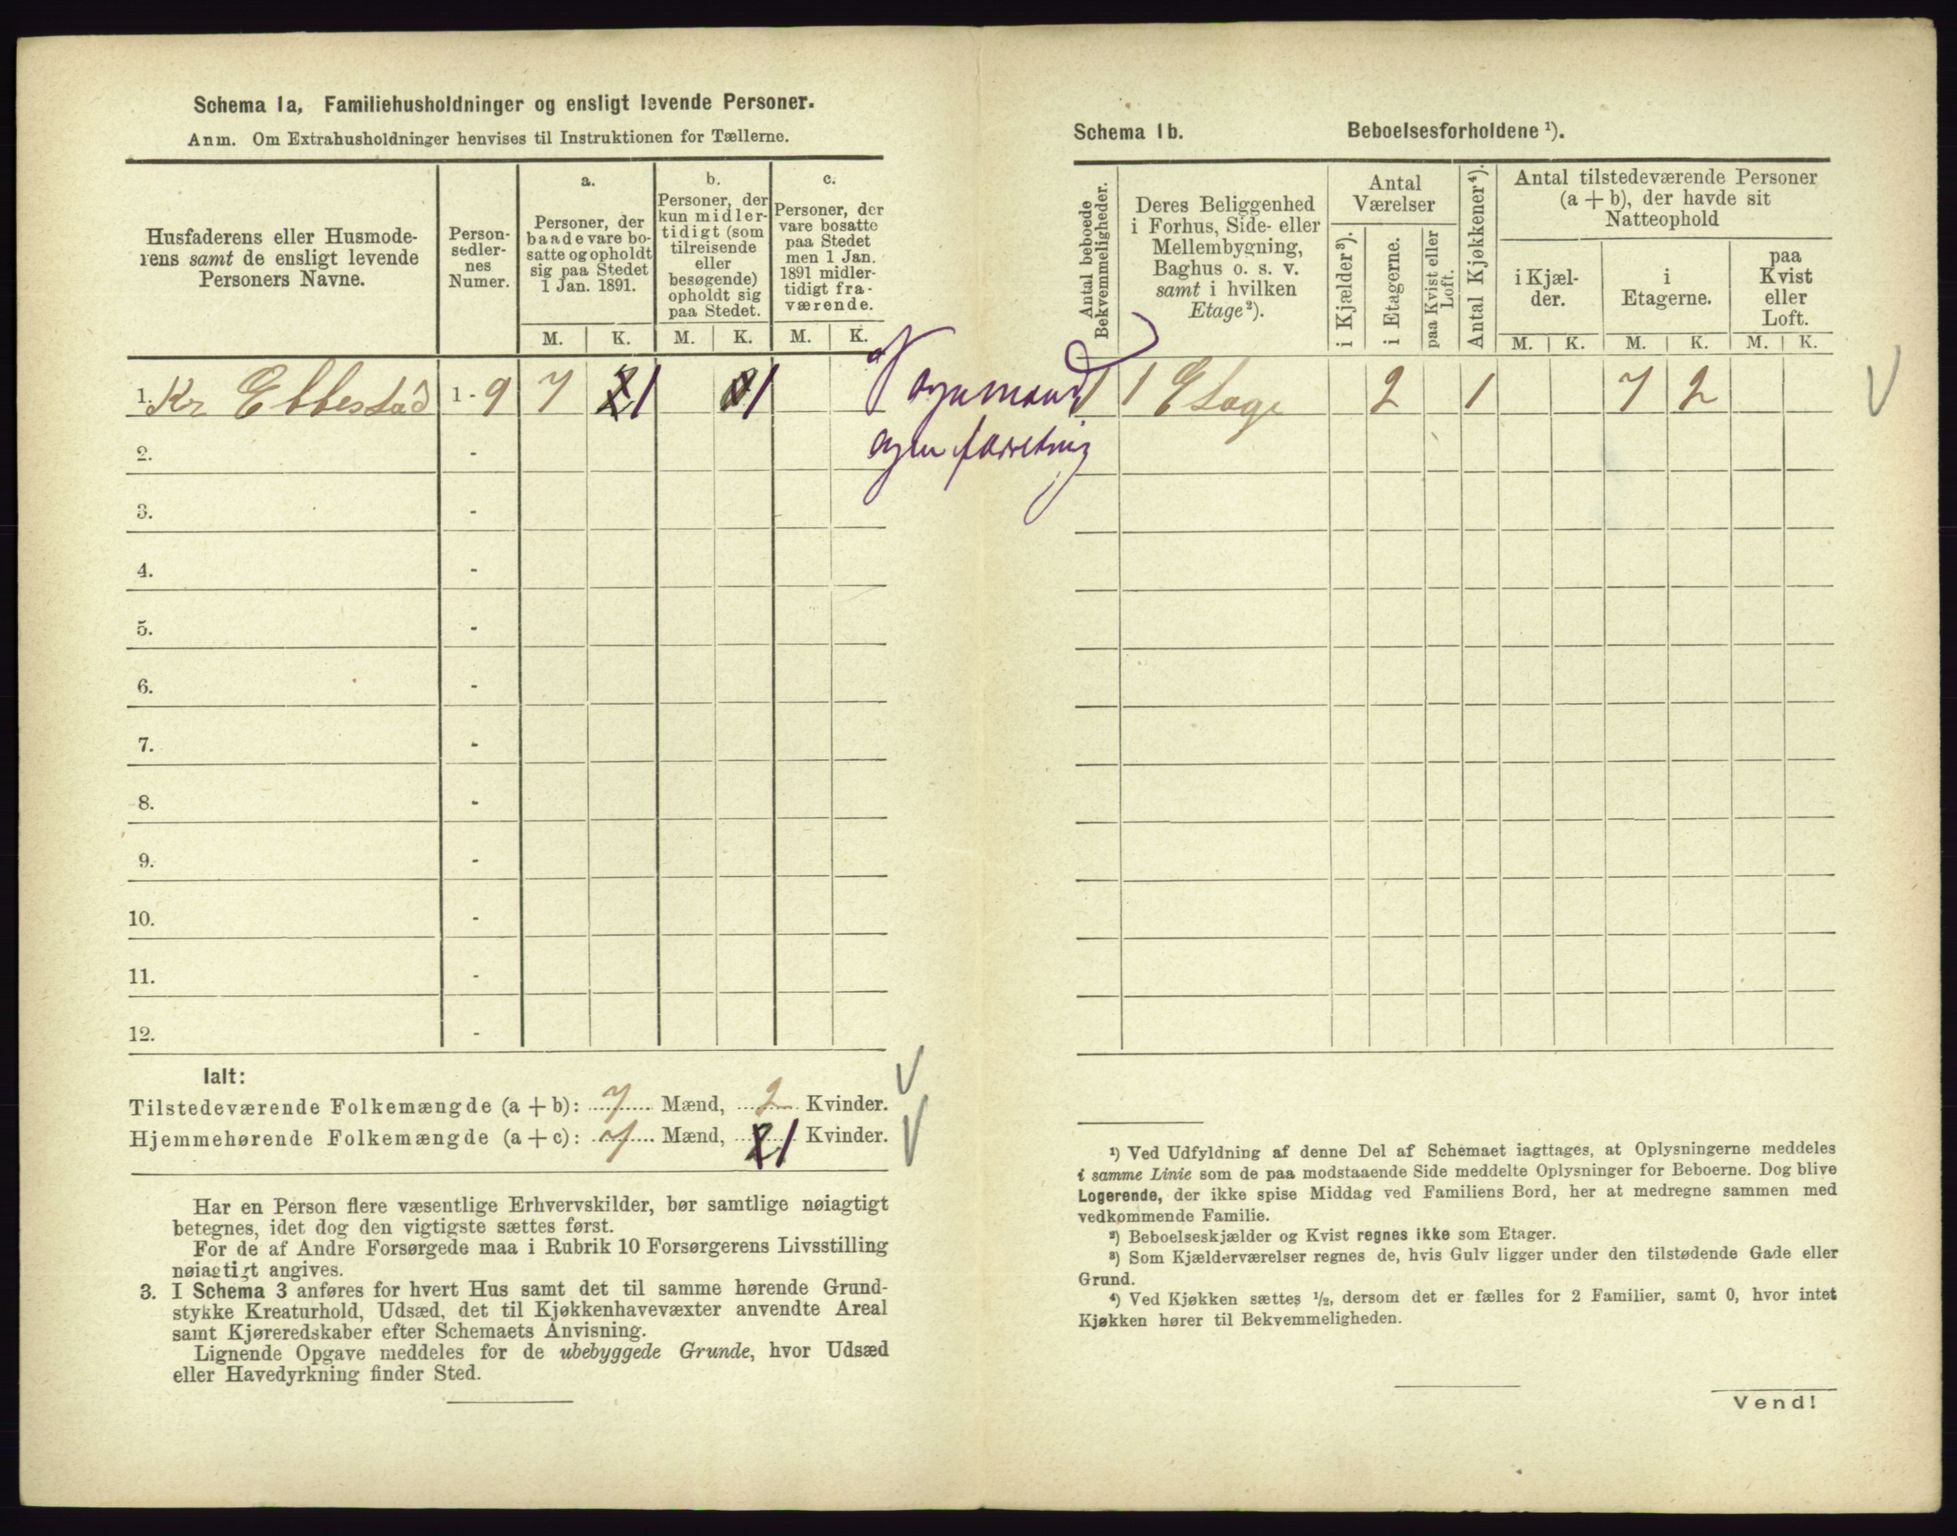 Schema 1a, Familiehusholdninger og ensligt levende Personer.
Anm. Om Extrahusholdninger henvises til Instruktionen for Tællerne.
Husfaderens eller Husmode-
rens samt de ensligt levende
Personers Navne.
Person-
sedler-
nes
Numer.
a.
Personer, der
baade vare bo-
satte og opholdt
sig paa Stedet
1 Jan. 1891.
b.
Personer, der
kun midler-
tidigt (som
tilreisende
eller
besøgende)
opholdt sig
paa Stedet.
c.
Personer, der
vare bosatte
paa Stedet
men 1 Jan.
1891 midler-
tidigt fra-
værende.
M. K. M. K. M. K.
1. Kr Ebbestad 1 - 9 7 1 1
2. -
3. -
4. -
5. -
6. -
7. -
8. -
9. -
10. -
11. -
12. -
Ialt:
Tilstedeværende Folkemængde (a + b): 7 Mænd, 2 Kvinder.
Hjemmehørende Folkemængde (a + c): 7 Mænd, 2 1 Kvinder.
Har en Person flere væsentlige Erhvervskilder, bør samtlige nøiagtigt
betegnes, idet dog den vigtigste sættes først.
For de af Andre Forsørgede maa i Rubrik 10 Forsørgerens Livsstilling
nøiagtigt angives.
3. I Schema 3 anføres for hvert Hus samt det til samme hørende Grund-
stykke Kreaturhold, Udsæd, det til Kjøkkenhavevæxter anvendte Areal
samt Kjøreredskaber efter Schemaets Anvisning.
Lignende Opgave meddeles for de ubebyggede Grunde, hvor Udsæd
eller Havedyrkning finder Sted.
Schema 1b. Beboelsesforholdene ¹).
Antal beboede
Bekvemmeligheder.
Deres Beliggenhed
i Forhus, Side- eller
Mellembygning,
Baghus o. s. v.
samt i hvilken
Etage²).
Antal
Værelser
i Kjælder³).
i Etagerne.
paa Kvist eller
Loft.
Antal Kjøkkener⁴).
Antal tilstedeværende Personer
(a + b), der havde sit
Natteophold
i Kjæl-
der.
i
Etagerne.
paa
Kvist
eller
Loft.
M. K. M. K. M. K.
1 1 Etage 2 1 7 2
¹) Ved Udfyldning af denne Del af Schemaet iagttages, at Oplysningerne meddeles
i samme Linie som de paa modstaaende Side meddelte Oplysninger for Beboerne. Dog blive
Logerende, der ikke spise Middag ved Familiens Bord, her at medregne sammen med
vedkommende Familie.
²) Beboelseskjælder og Kvist regnes ikke som Etager.
³) Som Kjælderværelser regnes de, hvis Gulv ligger under den tilstødende Gade eller
Grund.
⁴) Ved Kjøkken sættes ½, dersom det er fælles for 2 Familier, samt 0, hvor intet
Kjøkken hører til Bekvemmeligheden.
Vend!